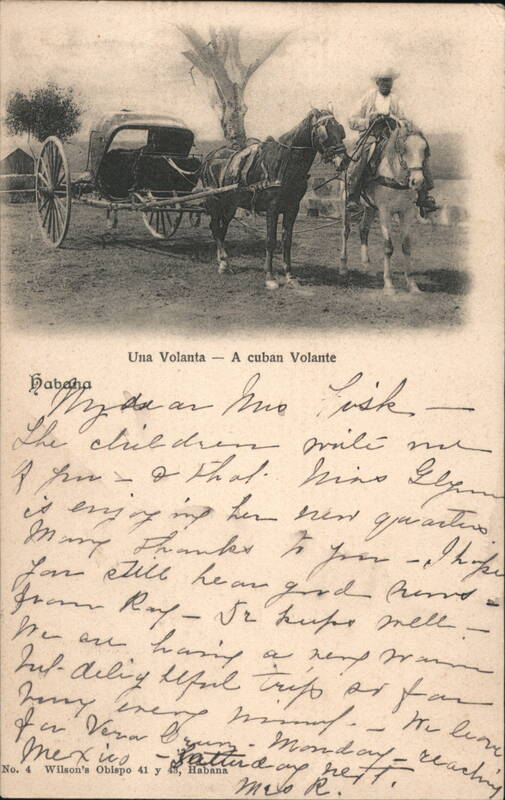 Una Volanta — A cuban Volante
Habana
My dear Mrs Fisk —
The children write me
of you — & that Miss Glynn
is enjoying her new quarters
Many thanks to you — I hope
you still hear good news —
from Ray — Dr keeps well —
We are having a very warm
but delightful trip so far
every mind — We leave
for Vera Cruz — Monday — reaching
Mexico — Saturday next.
Mrs R.
No. 4 Wilson's Obispo 41 y 43, Habana